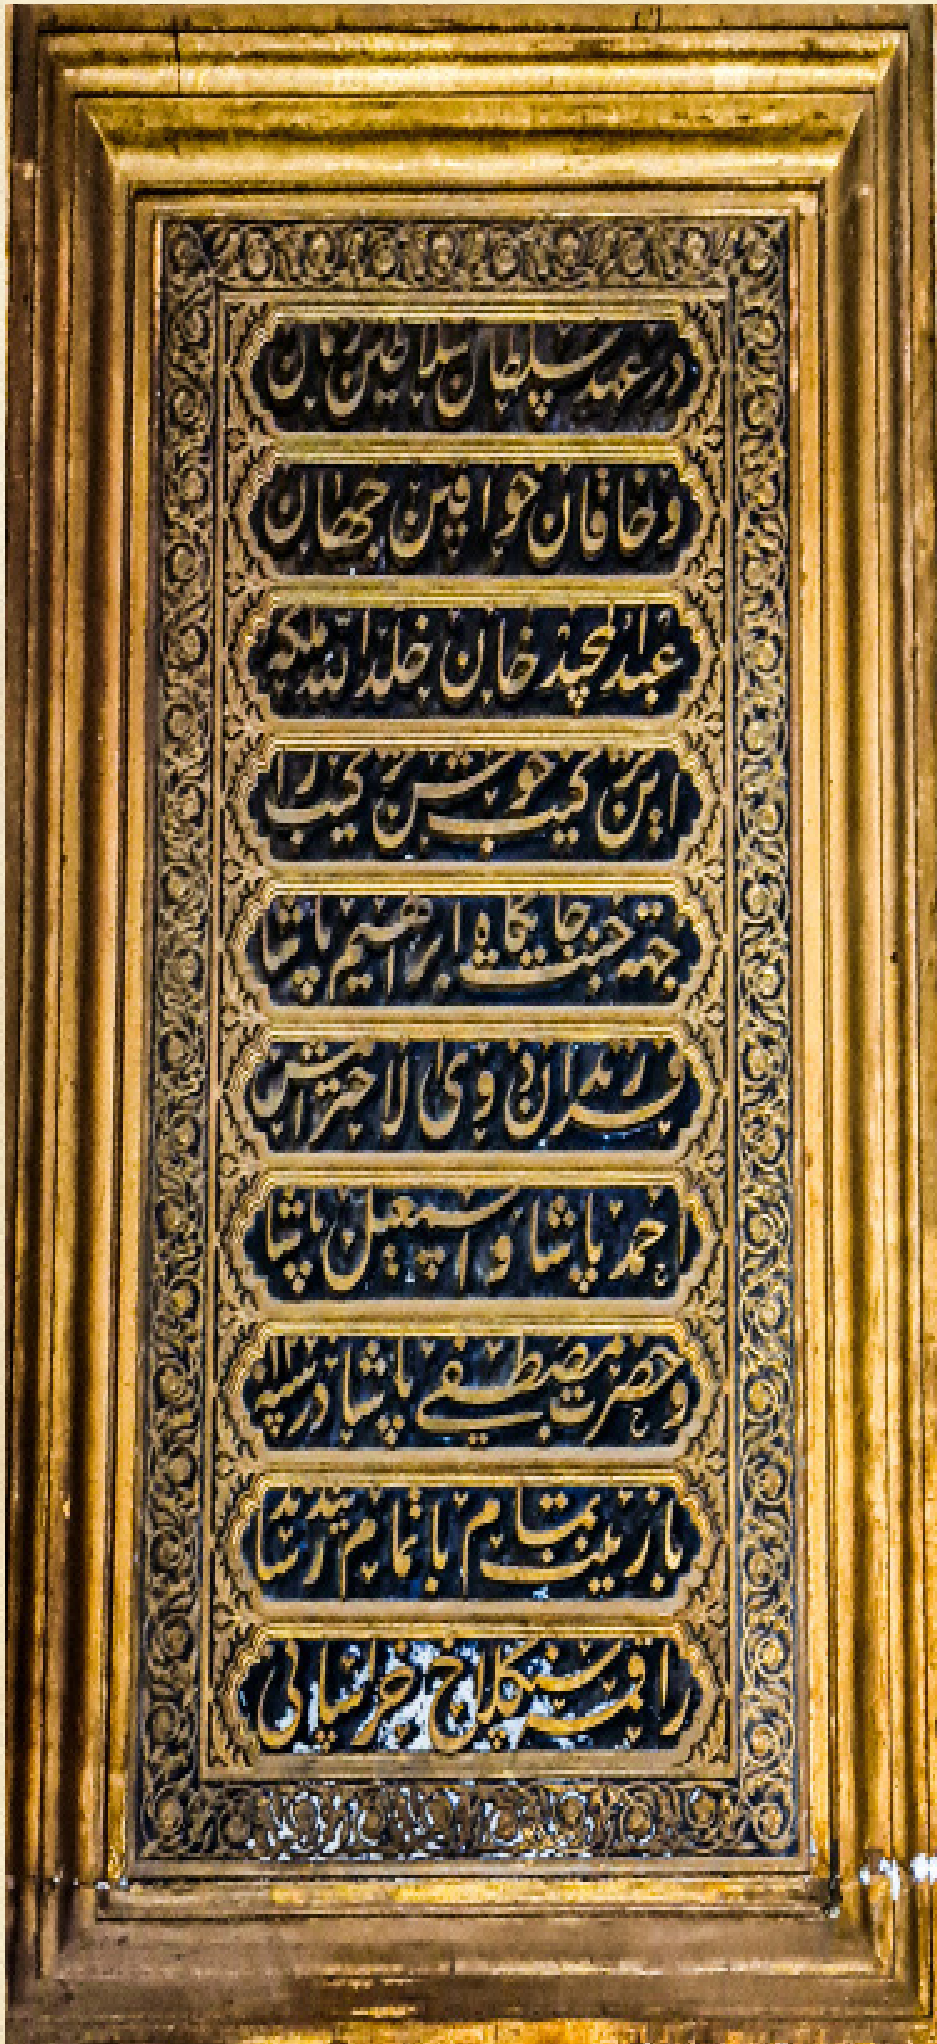 در عهد سلطان سلاطین زمان
و خاقان خواقین جهان
عبدالمجید خان خلد الله ملکه
این
جهة جنت جایگاه ابراهیم پاشا
فرزندان ذوی الاحترامش
احمد پاشا و اسمعیل پاشا
و حضرت مصطفی پاشا در سنه
با زینت تمام با تمام رسانیدند
راقمه سنکلاخ خراسانی